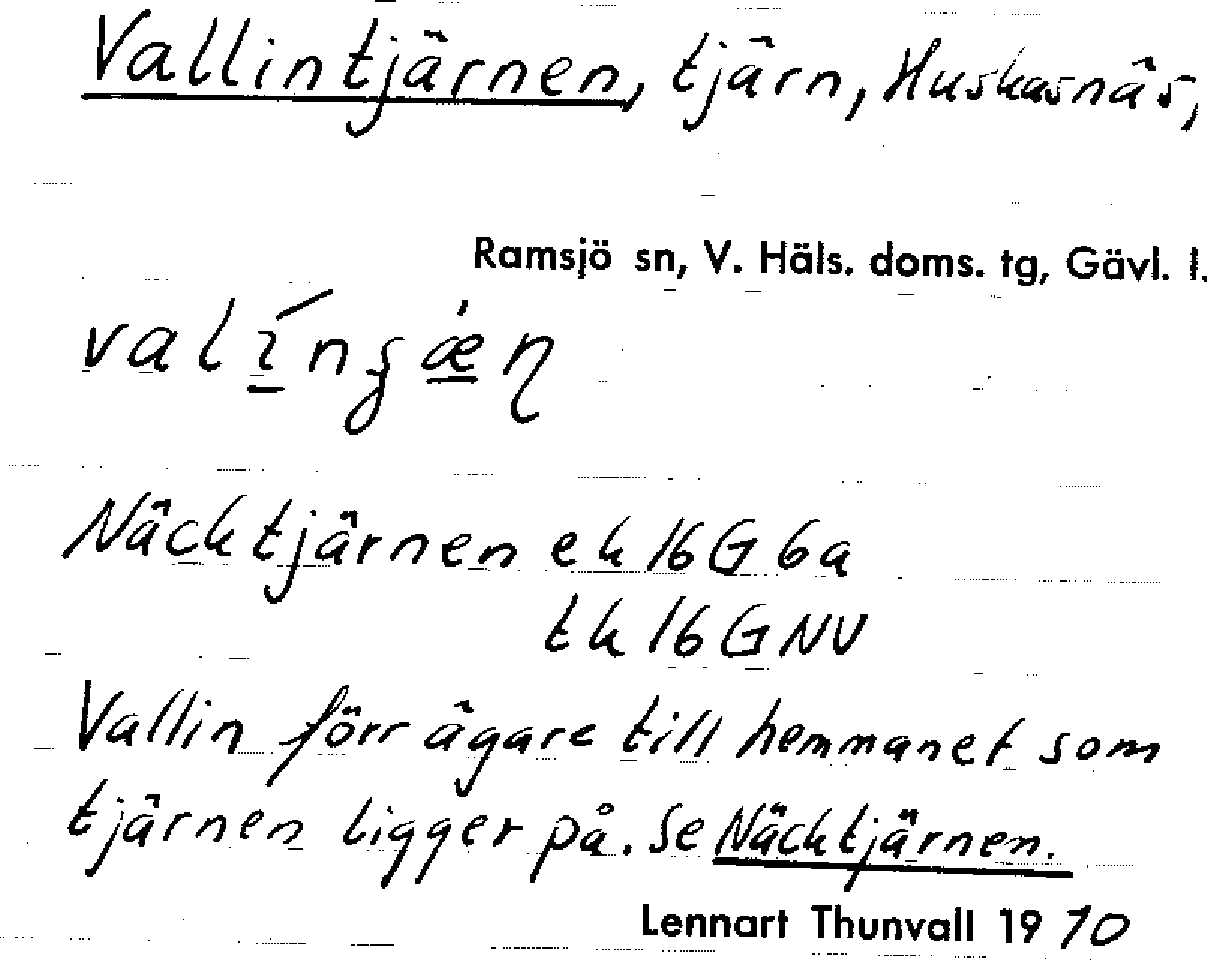 Vallintjärnen, tjärn, Huskasnäs,
Ramsjö sn, V. Häls. doms. tg, Gävl. l.
Näcktjärnen ek 16 G 6a
tk 16 G NV
Vallin förr ägare till hemmanet som
tjärnen ligger på. Se Näcktjärnen.
Lennart Thunvall 1970